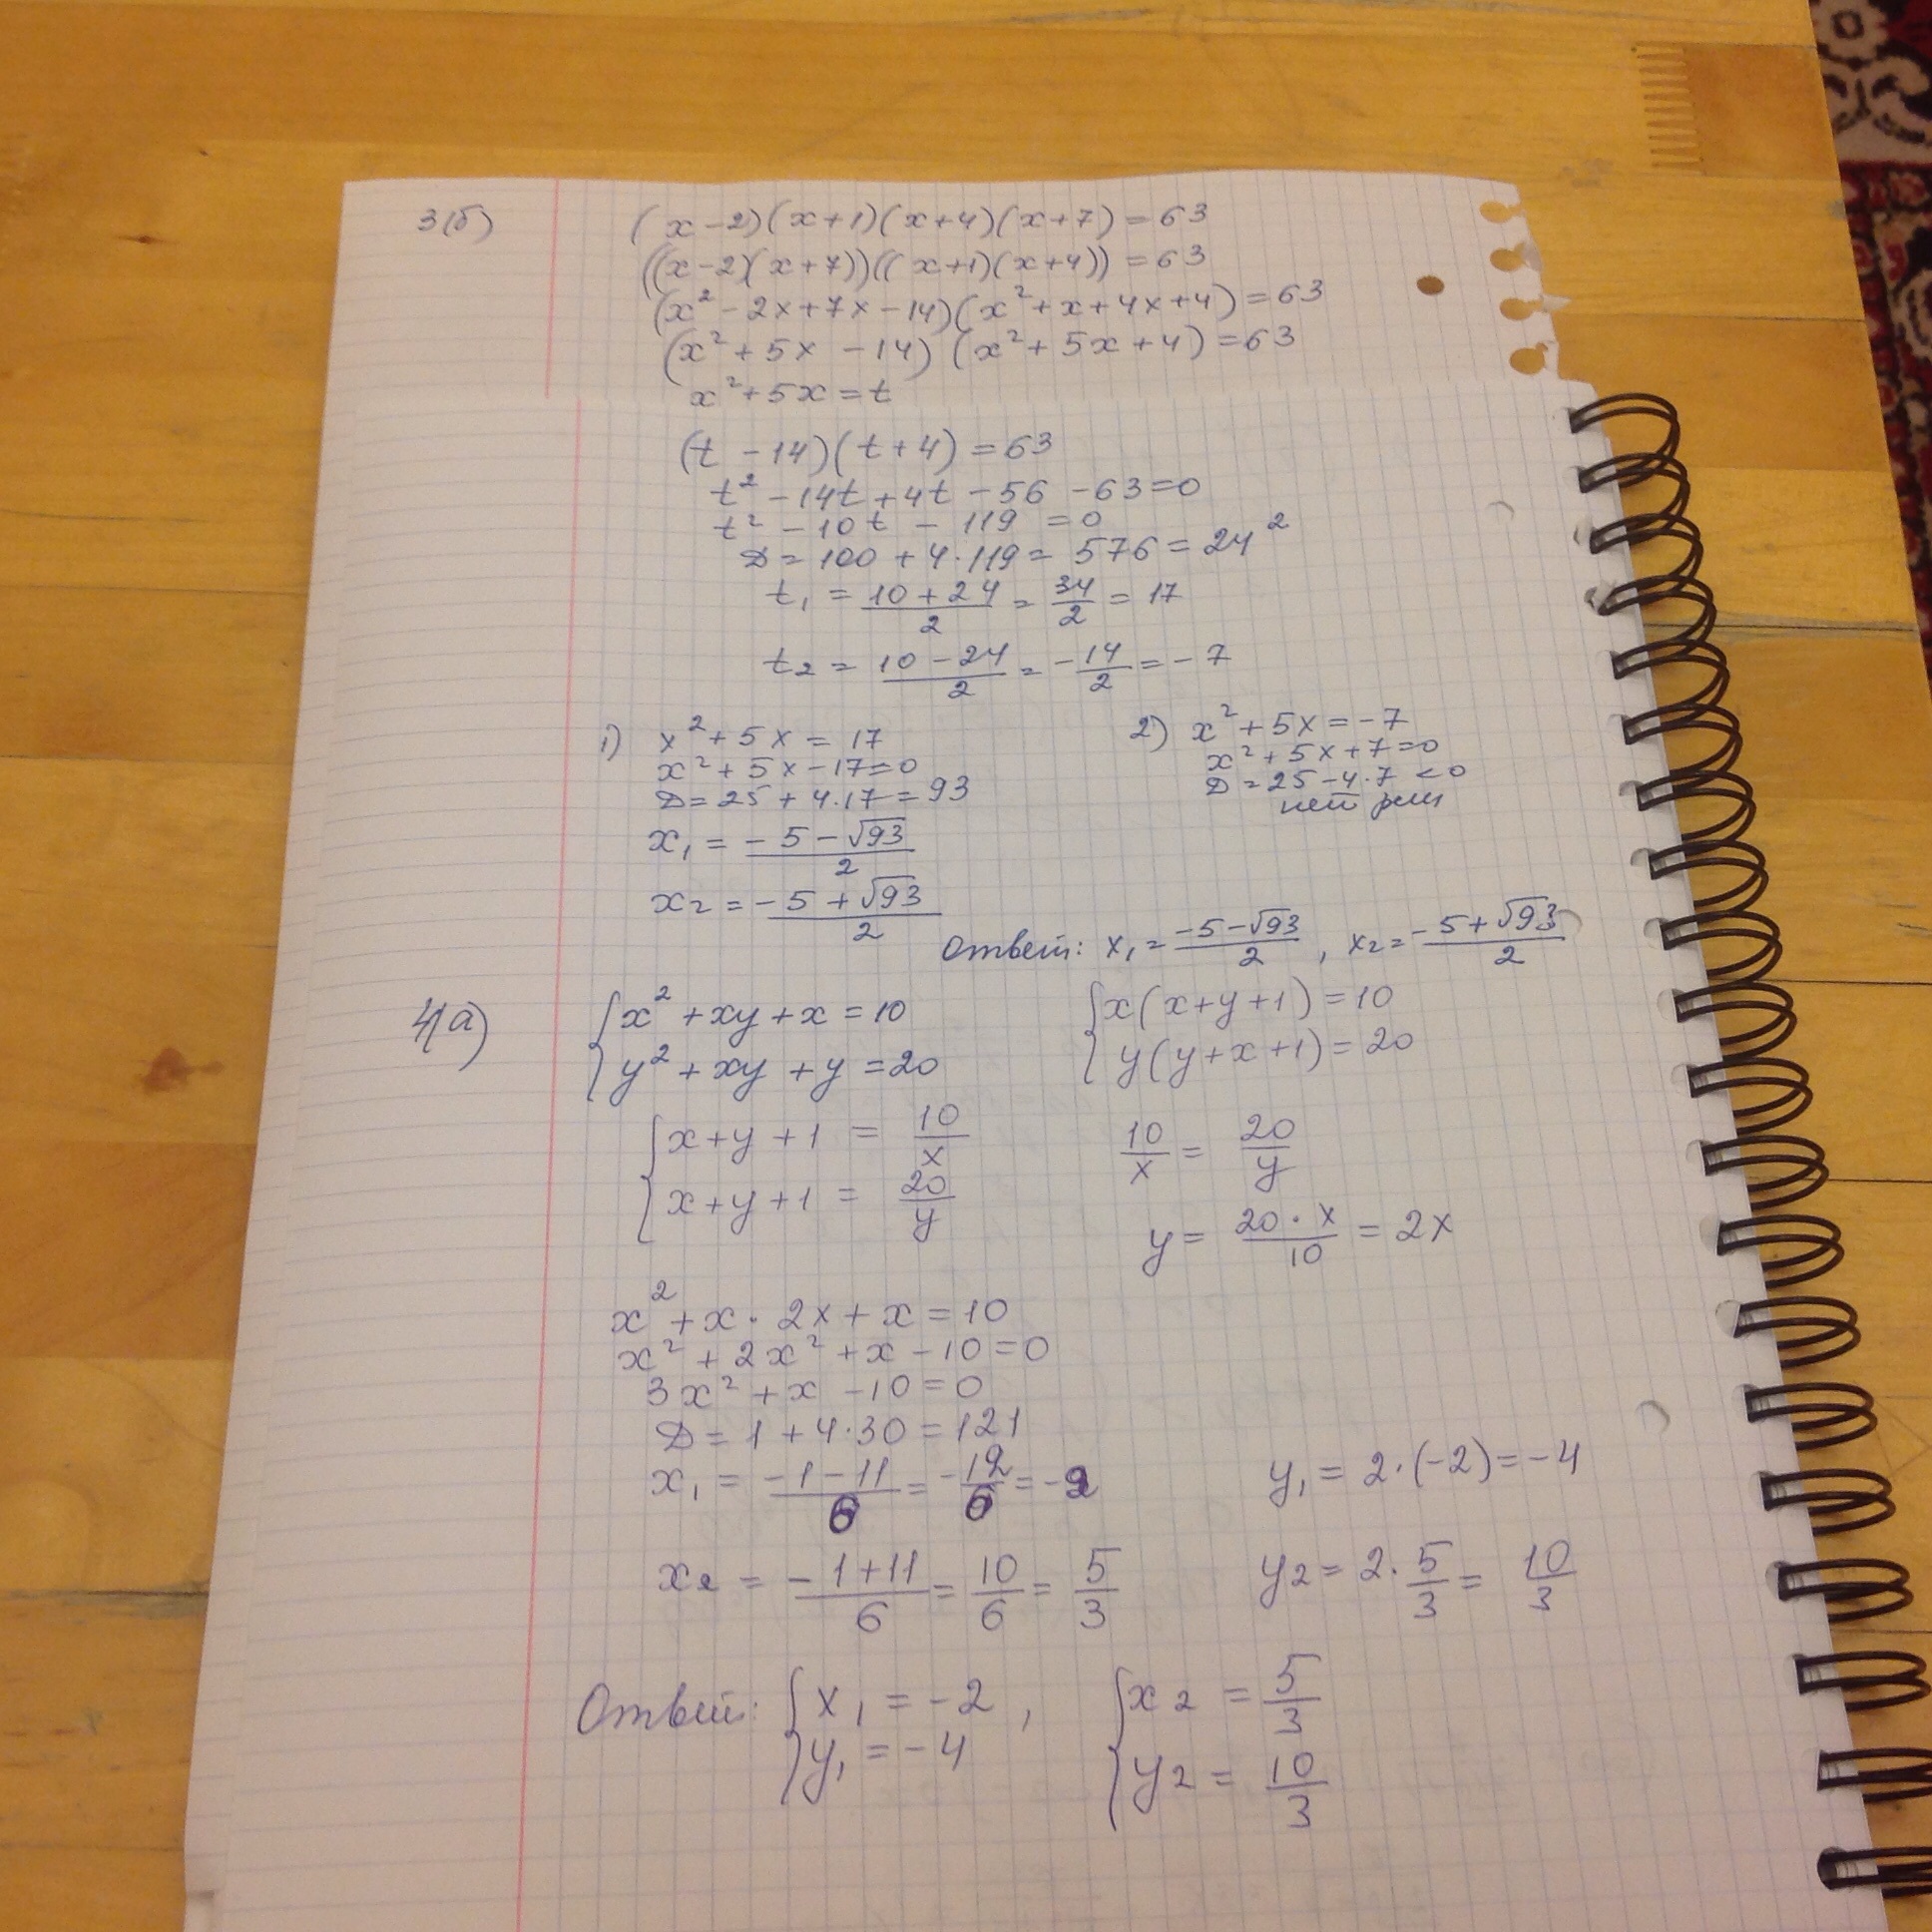 3(б) (x-2)(x+1)(x+4)(x+7)=63
((x-2)(x+7))((x+1)(x+4))=63
(x²-2x+7x-14)(x²+x+4x+4)=63
(x²+5x-14)(x²+5x+4)=63
x²+5x=t
(t-14)(t+4)=63
t²-14t+4t-56-63=0
t²-10t-119=0
D=100+4·119=576=24²
t₁=(10+24)/2=34/2=17
t₂=(10-24)/2=-14/2=-7
1) x²+5x=17
x²+5x-17=0
D=25+4·17=93
x₁=(-5-√93)/2
x₂=(-5+√93)/2
2) x²+5x=-7
x²+5x+7=0
D=25-4·7<0
нет реш
Ответ: x₁=(-5-√93)/2, x₂=(-5+√93)/2
4(а) {x²+xy+x=10
{y²+xy+y=20
{x(x+y+1)=10
{y(y+x+1)=20
{x+y+1=10/x
{x+y+1=20/y
10/x=20/y
y=(20·x)/10=2x
x²+x·2x+x=10
x²+2x²+x-10=0
3x²+x-10=0
D=1+4·30=121
x₁=(-1-11)/6=-12/6=-2 y₁=2·(-2)=-4
x₂=(-1+11)/6=10/6=5/3 y₂=2·5/3=10/3
Ответ: {x₁=-2, {x₂=5/3
{y₁=-4 {y₂=10/3